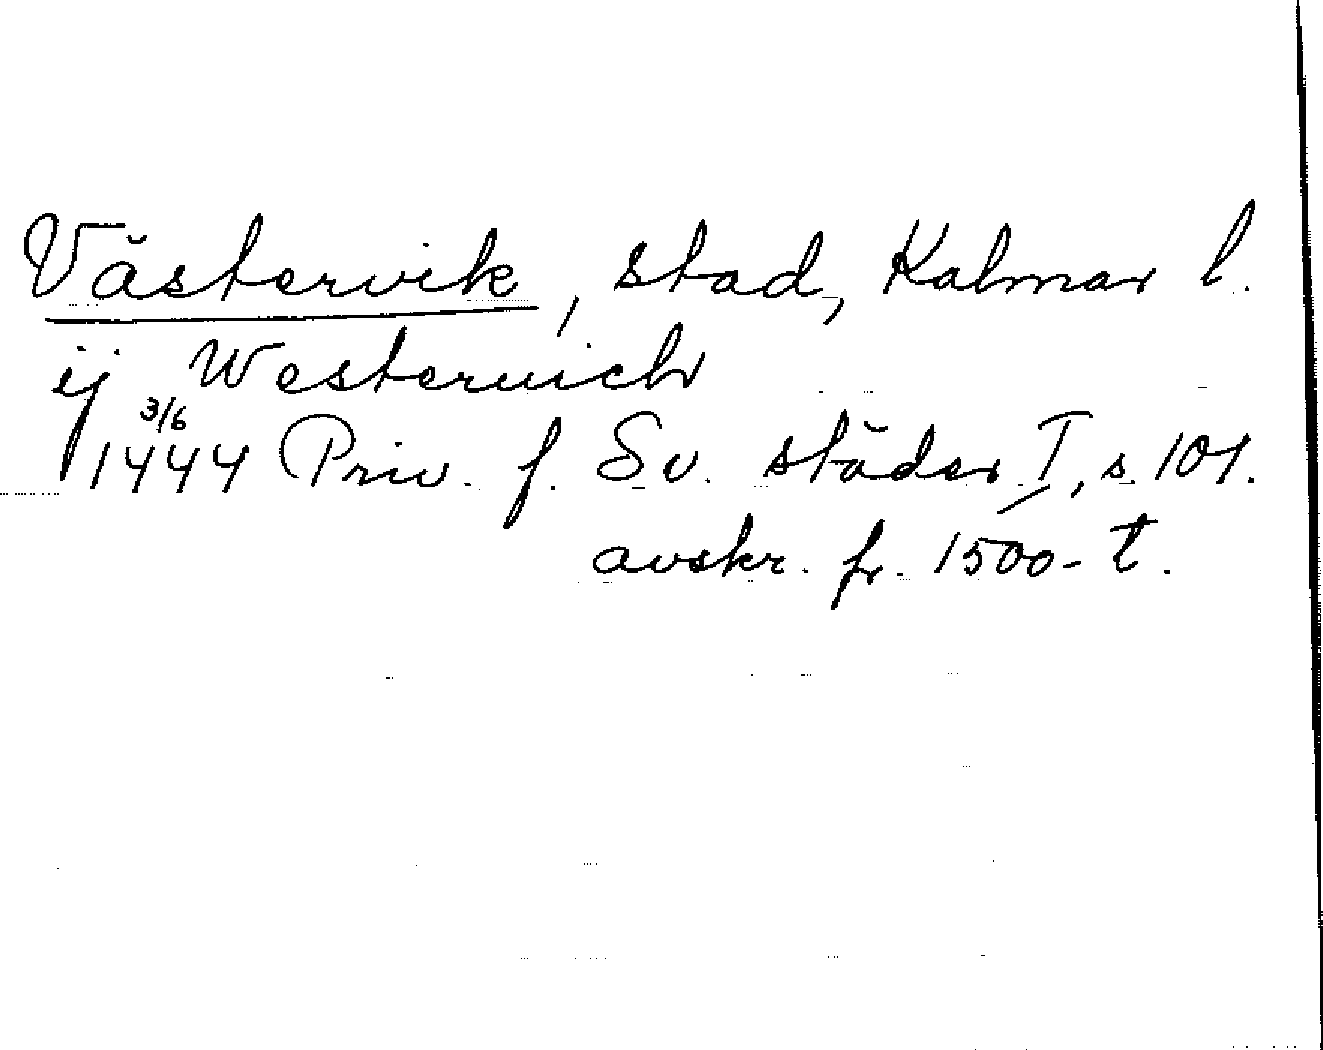 Västervik, stad, Kalmar l.
ij Westeruich
3/6
1444 Priv. f. Sv. städer I, s. 101.
avskr. fr. 1500-t.